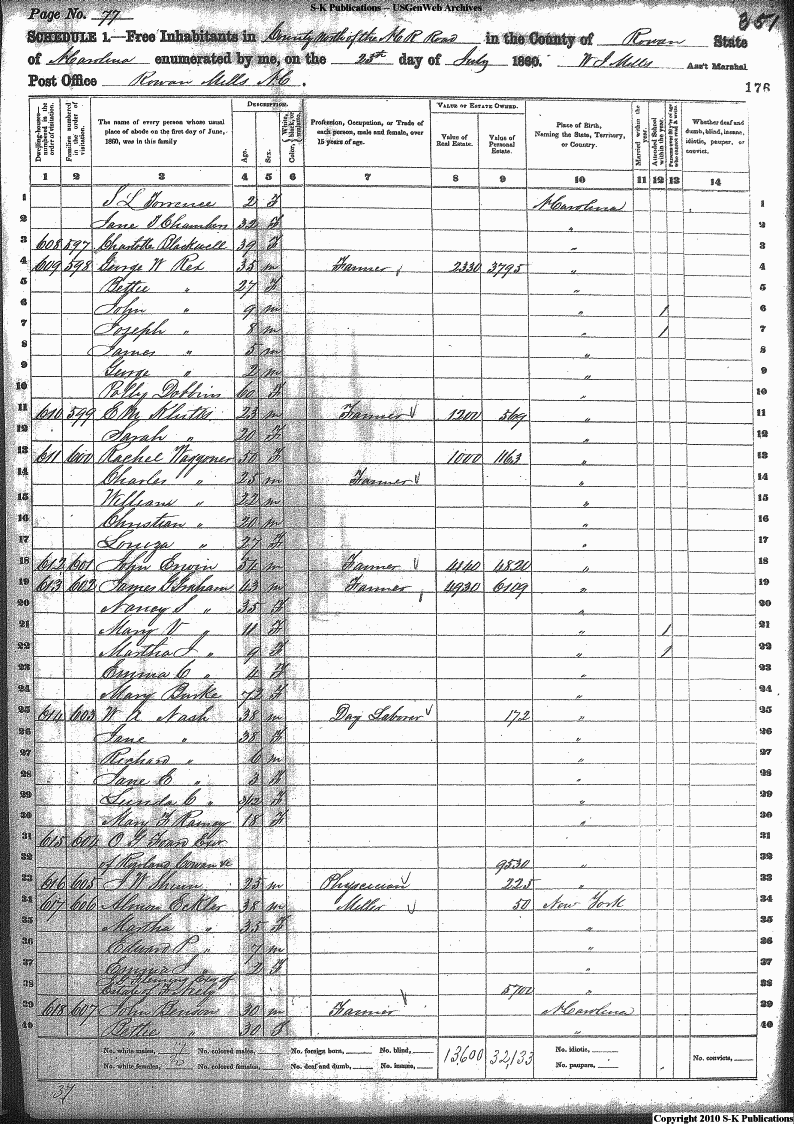 S-K Publications – USGenWeb Archives
Page No. 77
351
SCHEDULE 1.—Free Inhabitants in County North of the N.C. R Road in the County of Rowan State
of N Carolina enumerated by me, on the 25th day of July 1860. W J Mills Ass't Marshal
Post Office Rowan Mills N.C.
176
Dwelling-houses—numbered in the order of visitation. Families numbered in the order of visitation. The name of every person whose usual place of abode on the first day of June, 1860, was in this family DESCRIPTION. Age. Sex. Color, White, black, or mulatto. Profession, Occupation, or Trade of each person, male and female, over 15 years of age. VALUE OF ESTATE OWNED. Value of Real Estate. Value of Personal Estate. Place of Birth, Naming the State, Territory, or Country. Married within the year. Attended School within the year. Persons over 20 y'rs of age who cannot read & write. Whether deaf and dumb, blind, insane, idiotic, pauper, or convict.
1 2 3 4 5 6 7 8 9 10 11 12 13 14
1 S L Torrence 2 F N Carolina 1
2 Jane D Chambers 32 F " 2
3 608 597 Charlotte Blackwell 39 F " 3
4 609 598 George W Rex 35 m Farmer 2330 3795 " 4
5 Bettie " 27 F " 5
6 John " 9 m " 1 6
7 Joseph " 8 m " 1 7
8 James " 5 m " 8
9 George " 2 m " 9
10 Polly Dobbins 60 F " 10
11 610 599 E M Kluttz 23 m Farmer 1200 569 " 11
12 Sarah " 20 F " 12
13 611 600 Rachel Waggoner 50 F 1000 1163 " 13
14 Charles " 25 m Farmer " 14
15 William " 22 m " 15
16 Christian " 20 m " 16
17 Louiza " 27 F " 17
18 612 601 John Erwin 54 m Farmer 4140 4820 " 18
19 613 602 James G Graham 43 m Farmer 4930 6109 " 19
20 Nancy S " 35 F " 20
21 Mary V " 11 F " 1 21
22 Martha J " 9 F " 1 22
23 Emma C " 4 F " 23
24 Mary Burke 72 F " 24
25 614 603 W A Nash 38 m Day Laborer 172 " 25
26 Jane " 38 F " 26
27 Richard " 6 m " 27
28 Jane E " 3 F " 28
29 Lunda C " 3/12 F " 29
30 Mary F Ramey 18 F " 30
31 615 604 O G Foard Exr 31
32 of Rowland Cowan 9530 " 32
33 616 605 J W Shinn 25 m Physician 225 " 33
34 617 606 Almon Eckler 38 m Miller 50 New York 34
35 Martha " 35 F " 35
36 Edward P " 7 m " 36
37 Emma J " 2 F " 37
38 Fleming Exr of Estate of 5700 " 38
39 618 607 John Benson 30 m Farmer N Carolina 39
40 Bettie " 30 F " 40
No. white males, 17 No. colored males, No. foreign born, No. blind, 13,600 32,133 No. idiotic, No. convicts,
No. white females, No. colored females, No. deaf and dumb, No. insane, No. paupers,
37
Copyright 2010 S-K Publications